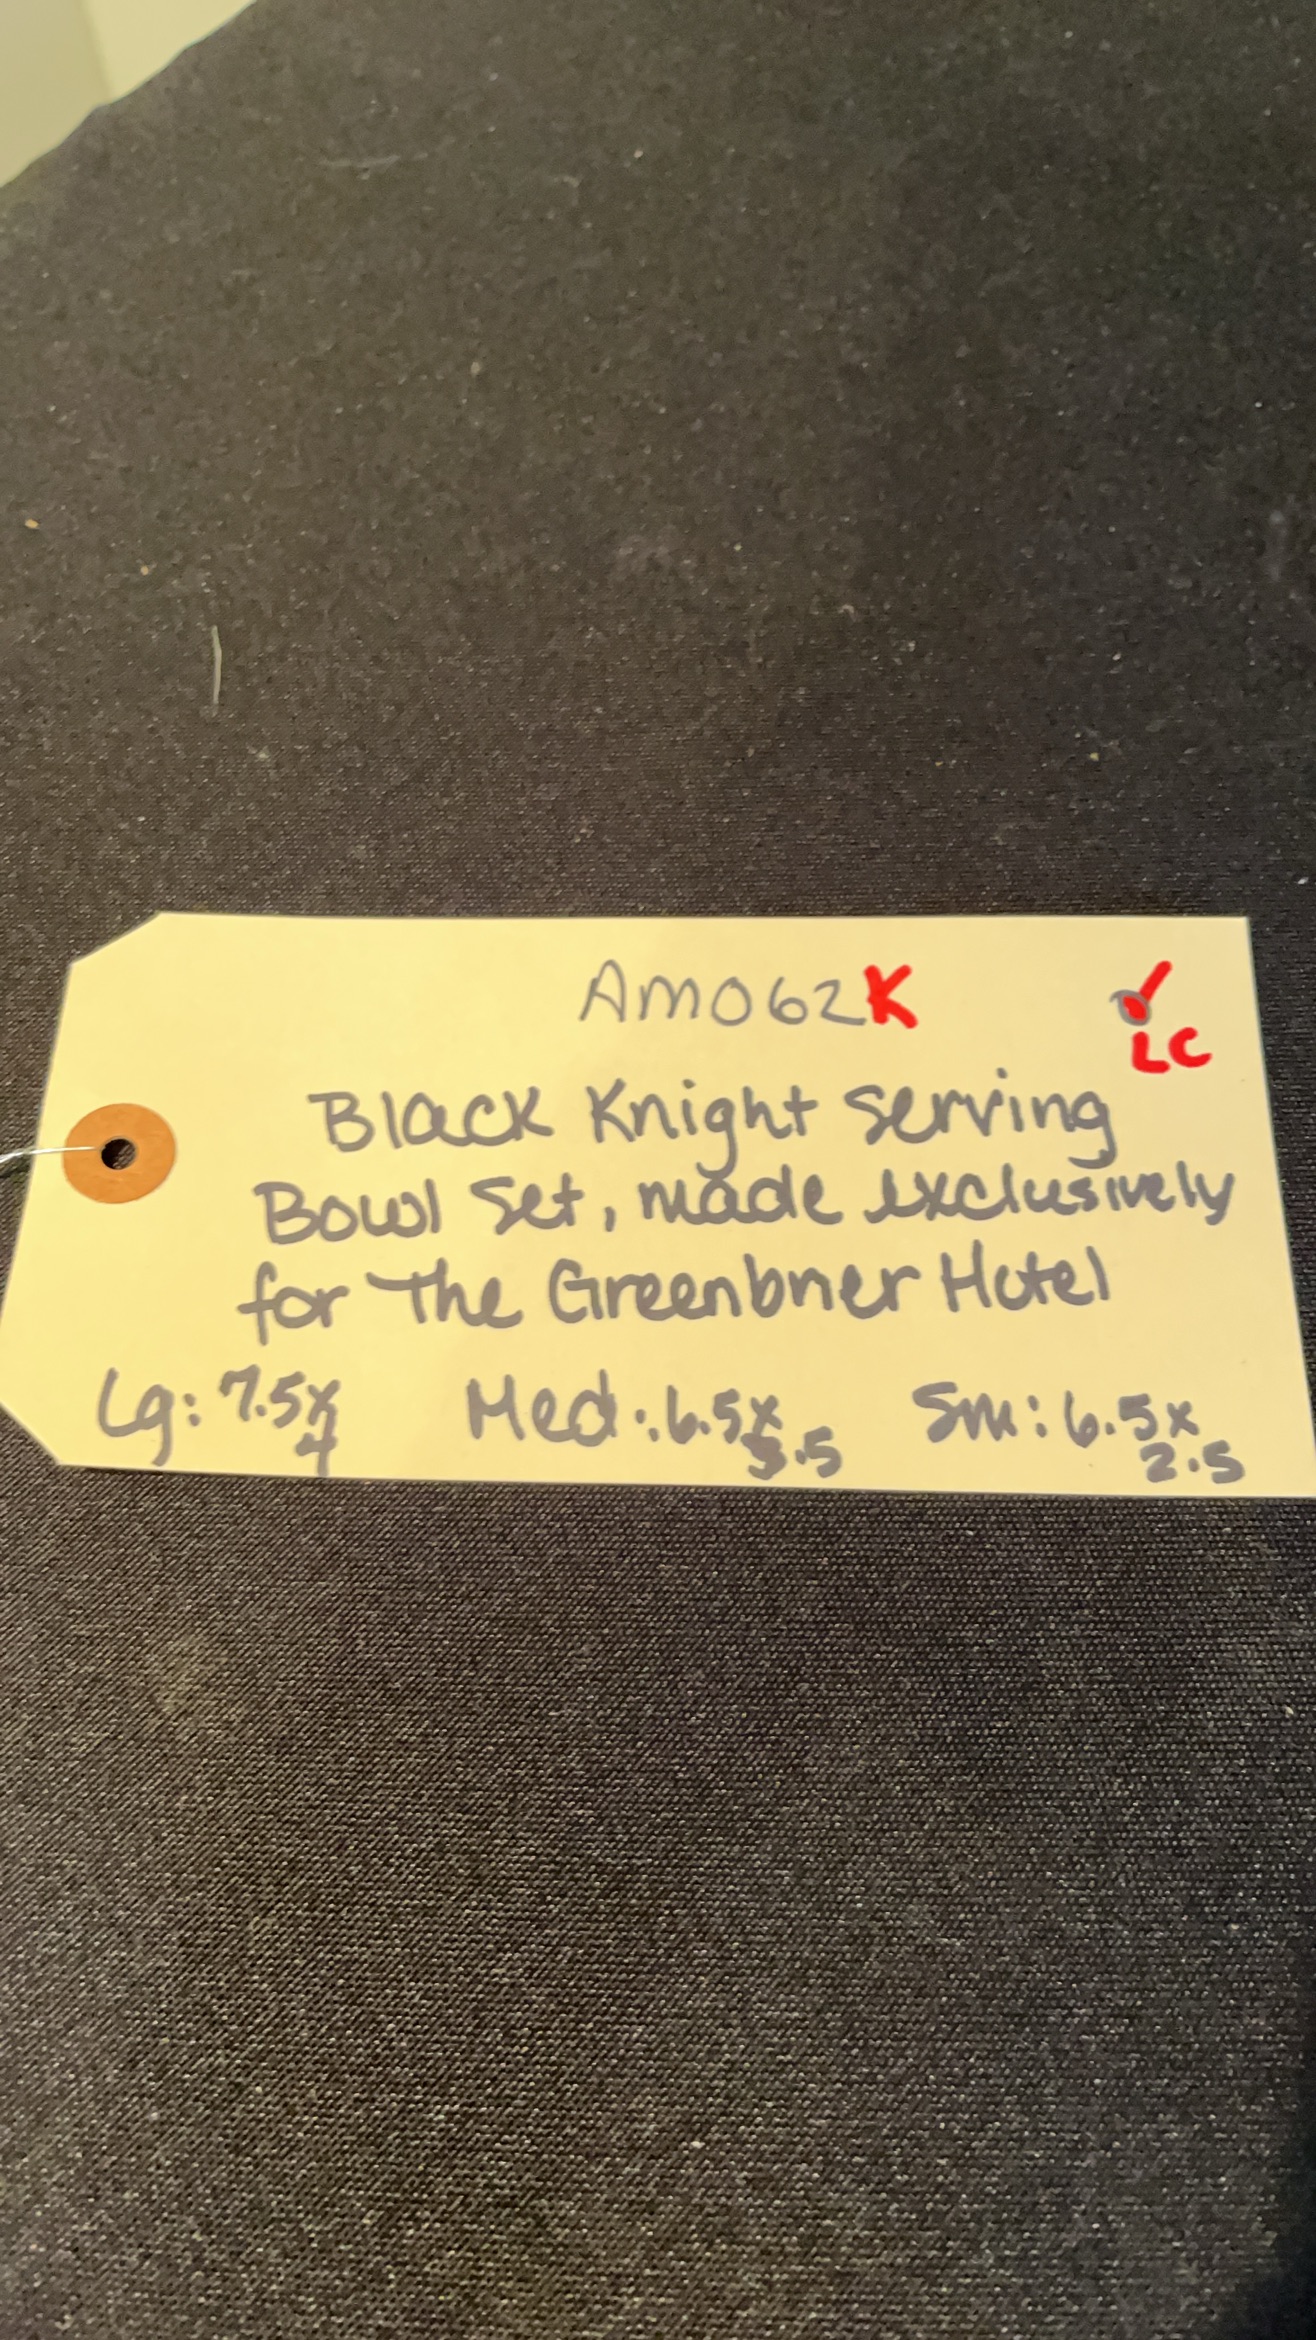 AM062K
LC
Black Knight Serving
Bowl Set, made exclusively
for The Greenbrier Hotel
Lg: 7.5x4 Med: 6.5x3.5 Sm: 6.5x2.5